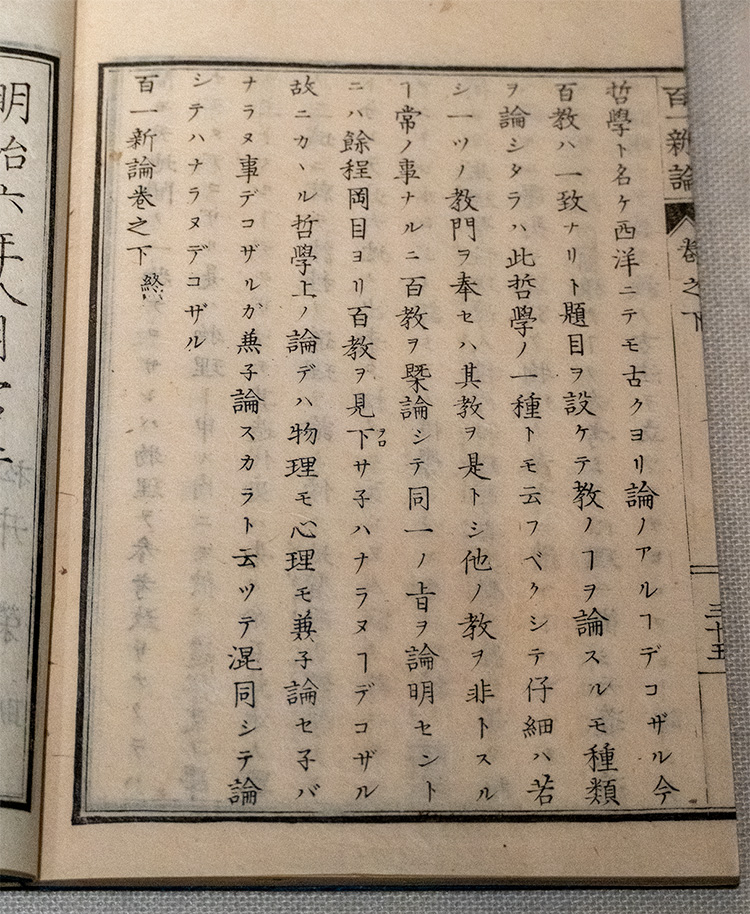 百一新論 卷之下 三十五
哲學ト名ケ西洋ニテモ古クヨリ論ノアルヿデコザル今
百教ハ一致ナリト題目ヲ設ケテ教ノヿヲ論スルモ種類
ヲ論シタラハ此哲學ノ一種トモ云フベクシテ仔細ハ若
シ一ツノ教門ヲ奉セハ其教ヲ是トシ他ノ教ヲ非トスル
ヿ常ノ事ナルニ百教ヲ槩論シテ同一ノ旨ヲ論明セント
ニハ餘程岡目ヨリ百教ヲ見下サ子ハナラヌヿデコザル
故ニカヽル哲學上ノ論デハ物理モ心理モ兼子論セ子バ
ナラヌ事デコザルガ兼子論スカラト云ツテ混同シテ論
シテハナラヌデコザル
百一新論卷之下 終
明治六年